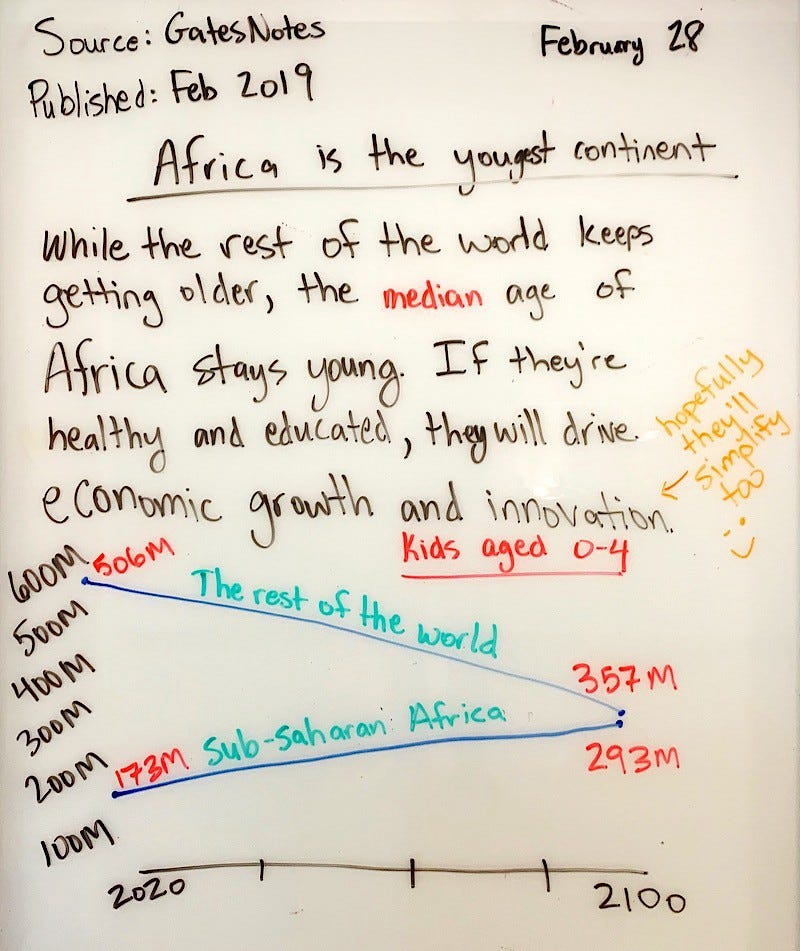 Source: GatesNotes
February 28
Published: Feb 2019
Africa is the yougest continent
While the rest of the world keeps
getting older, the median age of
Africa stays young. If they're
healthy and educated, they will drive.
economic growth and innovation.
hopefully
they'll
simplify
too
Kids aged 0-4
600M
506M
The rest of the world
500M
400M
357M
300M
Sub-Saharan Africa
200M
173M
293M
100M
2020
2100